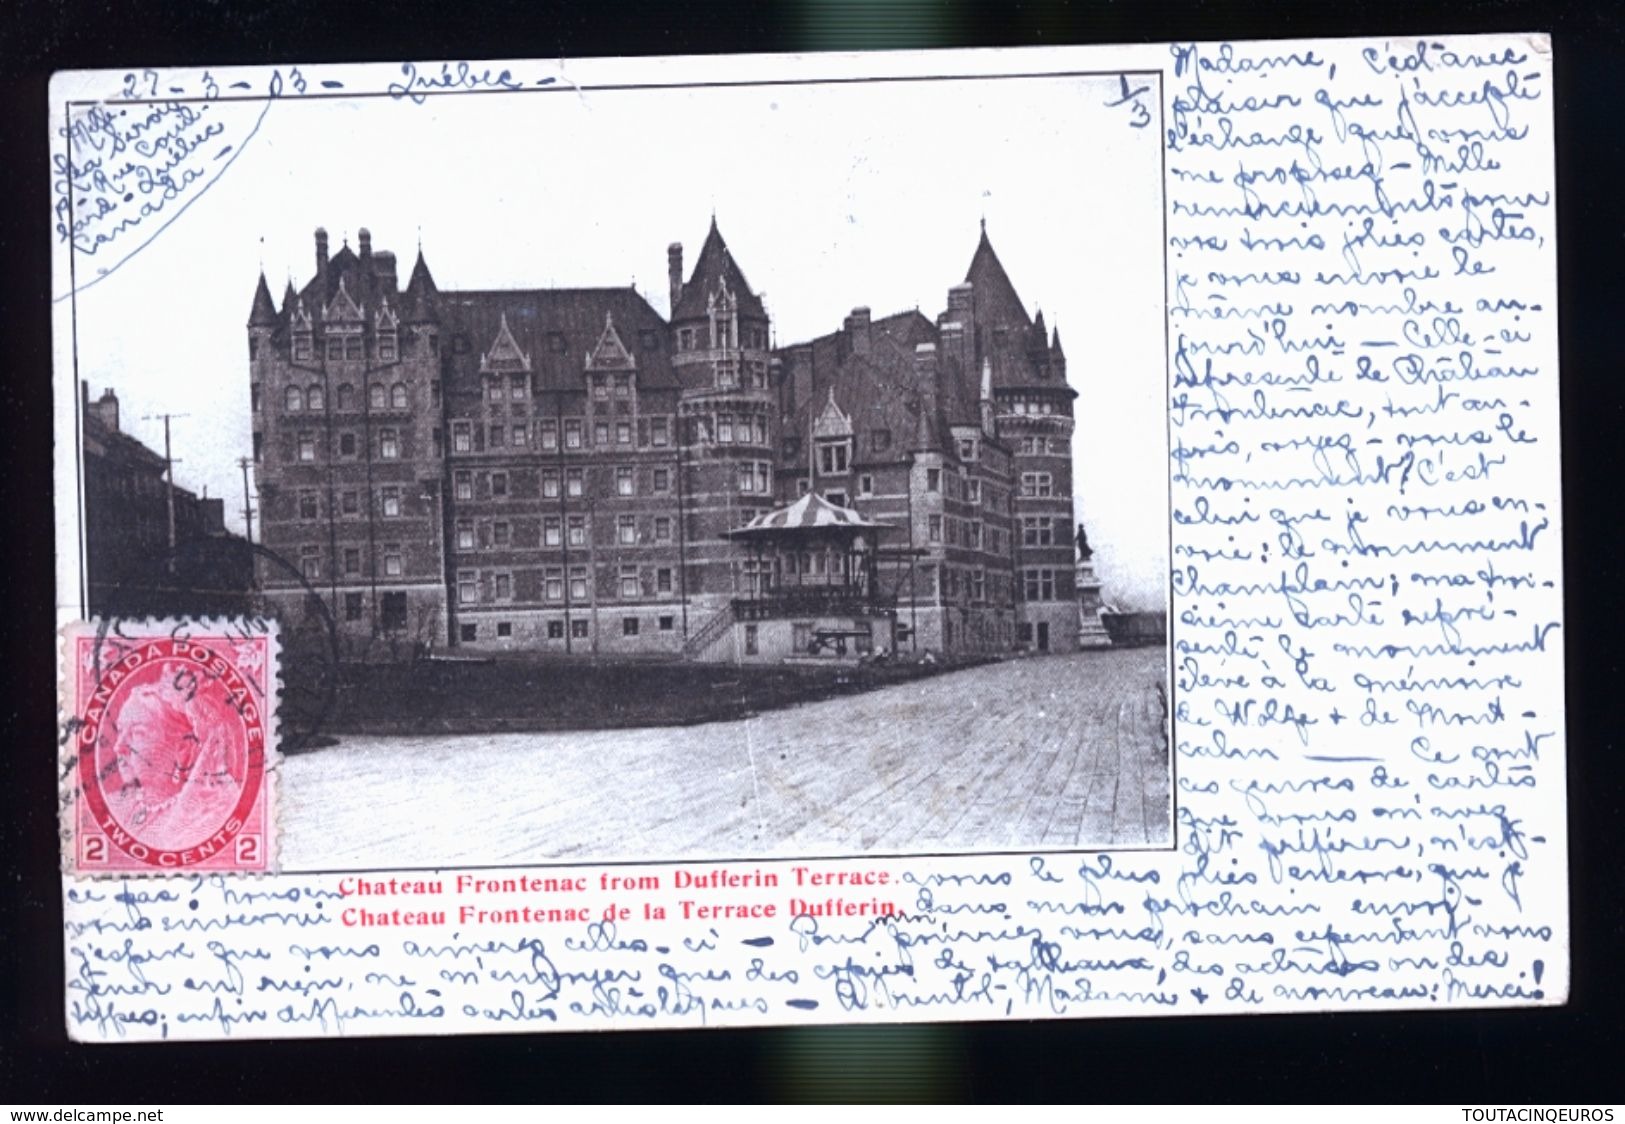 27 - 3 - 03 - Québec -
1/3
Melle.
Rue Couil-
lard - Québec
Canada -
Madame, C'est avec
plaisir que j'accepte
l'échange que vous
me proposez - Mille
remerciements pour
vos trois jolies cartes,
je vous envoie le
même nombre au-
jourd'hui - Celle-ci
représente le Château
Frontenac, tout au-
près, voyez-vous le
monument? C'est
celui que je vous en-
voie: le monument
Champlain; ma troi-
sième carte repré-
sente le monument
élevé à la mémoire
de Wolfe & de Mont-
calm — Ce sont
ces genres de cartes
que vous m'avez
dit préférer, n'est-
ce pas? nous en avons de plus jolies encore, que je
vous enverrai dans mon prochain envoi -
j'espère que vous aimerez celles-ci - Pour mm
gêner en rien, ne m'envoyer que des copies de tableaux, des actrices ou des
types; enfin différentes cartes artistiques - A bientôt, Madame & de nouveau: Merci!
Chateau Frontenac from Dufferin Terrace.
Chateau Frontenac de la Terrace Dufferin.
CANADA POSTAGE
2 TWO CENTS 2
www.delcampe.net
TOUTACINQEUROS